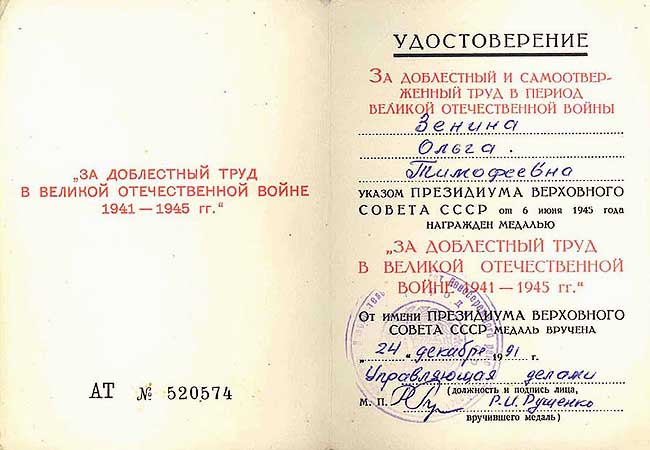 „ЗА ДОБЛЕСТНЫЙ ТРУД
В ВЕЛИКОЙ ОТЕЧЕСТВЕННОЙ ВОЙНЕ
1941 — 1945 гг.“
АТ № 520574
УДОСТОВЕРЕНИЕ
ЗА ДОБЛЕСТНЫЙ И САМООТВЕР-
ЖЕННЫЙ ТРУД В ПЕРИОД
ВЕЛИКОЙ ОТЕЧЕСТВЕННОЙ ВОЙНЫ
Зенина
Ольга
Тимофеевна
УКАЗОМ ПРЕЗИДИУМА ВЕРХОВНОГО
СОВЕТА СССР от 6 июня 1945 года
НАГРАЖДЕН МЕДАЛЬЮ
„ЗА ДОБЛЕСТНЫЙ ТРУД
В ВЕЛИКОЙ ОТЕЧЕСТВЕННОЙ
ВОЙНЕ 1941 — 1945 гг.“
ОТ ИМЕНИ ПРЕЗИДИУМА ВЕРХОВНОГО
СОВЕТА СССР МЕДАЛЬ ВРУЧЕНА
„24“ декабря 1991 г.
Управляющая делами
(должность и подпись лица,
М. П. Р.И. Рущенко
вручившего медаль)